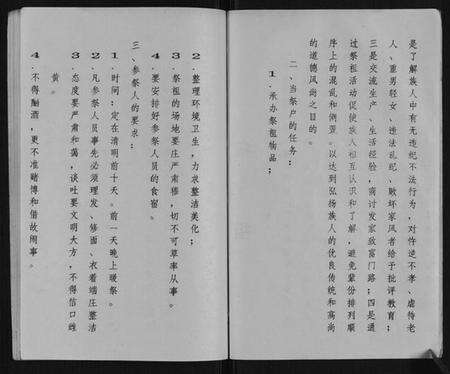 是了解族人中有无违纪不法行为，对忤逆不孝、虐待老
人、重男轻女、违法乱纪、败坏家风者给于批评教育；
三是交流生产、生活经验，商讨发家致富门路；四是通
过祭祖活动促使族人相互认识和了解，避免辈份排列顺
序上的混乱和倒置。以达到弘扬族人的优良传统和高尚
的道德风尚之目的。
二、当祭户的任务：
1．承办祭祖物品；
2．整理环境卫生，力求整洁美化；
3．祭祖的场地要庄严肃穆，切不可草率从事。
4．要安排好参祭人员的食宿。
三、参祭人的要求：
1．时间：定在清明前十天。前一天晚上暖祭。
2．凡参祭人员事先必须理发、修面、衣着端庄整洁
3．态度要严肃和蔼，谈吐要文明大方，不得信口雌
黄。
4．不得酗酒，更不准赌博和借故闹事。